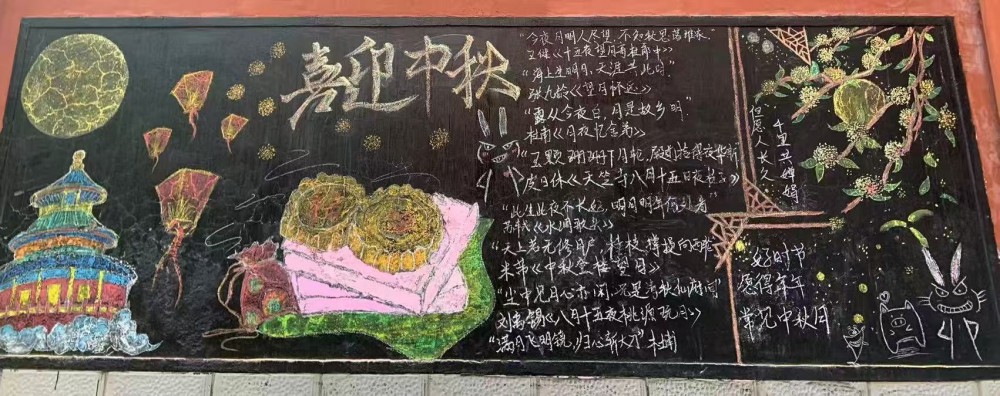 喜迎中秋
“今夜月明人尽望，不知秋思落谁家”
王健《十五夜望月寄杜郎中》
“海上生明月，天涯共此时”
张九龄《望月怀远》
“露从今夜白，月是故乡明”
杜甫《月夜忆舍弟》
“玉颗珊珊下月轮，殿前拾得露华新”
皮日休《天竺寺八月十五日夜桂子》
“此生此夜不长好，明月明年何处看”
苏轼《水调歌头》
“天上若无修月户，桂枝撑损向西轮”
米芾《中秋登楼望月》
“尘中见月心亦闲，况是清秋仙府间”
刘禹锡《八月十五夜桃源玩月》
“满月飞明镜，归心折大刀”杜甫
但愿人长久
千里共婵娟
好时节
愿得年年
常见中秋月